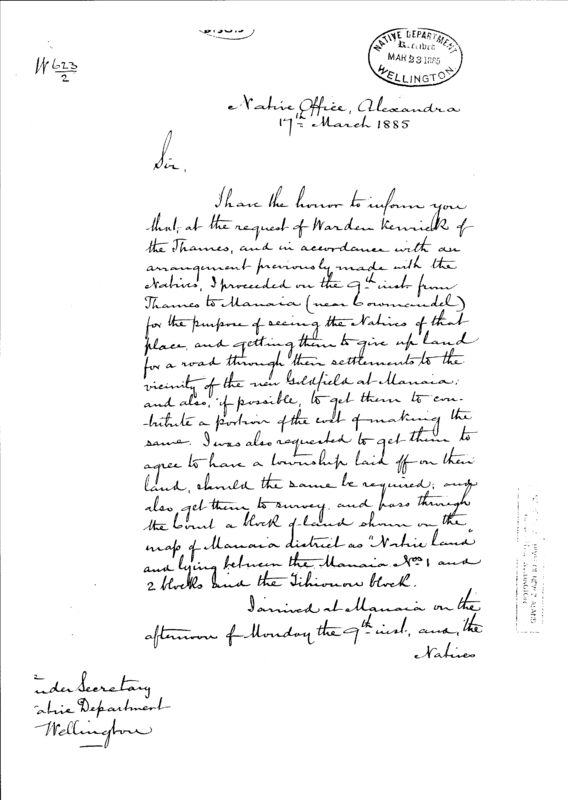 N 623/2
NATIVE DEPARTMENT
Received
MAR 23 1885
WELLINGTON
Native Office, Alexandra
17th March 1885
Sir,
I have the honor to inform you
that, at the request of Warden Kenrick of
the Thames, and in accordance with an
arrangement previously made with the
Natives, I proceeded on the 9th inst. from
Thames to Manaia (near Coromandel)
for the purpose of seeing the Natives of that
place, and getting them to give up land
for a road through their settlements to the
vicinity of the new Goldfield at Manaia;
and also, if possible, to get them to con-
tribute a portion of the cost of making the
same. I was also requested to get them to
agree to have a township laid off on their
land, should the same be required; and
also get them to survey and pass through
the Court a block of land shown on the
map of Manaia district as "Native land"
and lying between the Manaia Nos 1 and
2 blocks and the block.
I arrived at Manaia on the
afternoon of Monday the 9th inst., and, the
Natives
nder Secretary
ative Department
Wellington